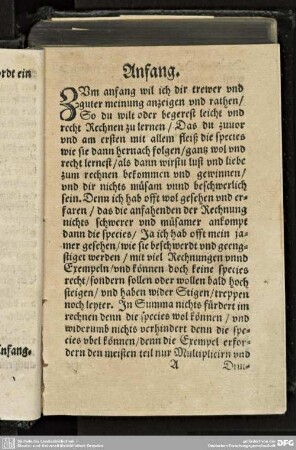 ordt ein
Anfang.
Anfang.
ZVm anfang wil ich dir trewer vnd
guter meinung anzeigen vnd rathen/
So du wilt oder begerest leicht vnd
recht Rechnen zu lernen / Das du zuuor
vnd am ersten mit allem fleiß die species
wie sie dann hernach folgen/gantz wol vnd
recht lernest/als dann wirstu lust vnd liebe
zum rechnen bekommen vnd gewinnen/
vnd dir nichts müsam vnnd beschwerlich
sein. Denn ich hab offt wol gesehen vnd er-
faren / das die anfahenden der Rechnung
nichts schwerer vnd müsamer ankompt
dann die species / Ja ich hab offt mein ja-
mer gesehen/wie sie beschwerdt vnd geeng-
stiget werden / mit viel Rechnungen vnnd
Exempeln/vnd können doch keine species
recht/sondern sollen oder wollen bald hoch
steigen/ vnd haben wider Stigen/treppen
noch leyter. In Summa nichts fürdert im
rechnen denn die species wol können / vnd
widerumb nichts verhindert denn die spe-
cies vbel können/denn die Exempel erfor-
dern den meisten teil nur Multiplicirn vnd
A Diui-